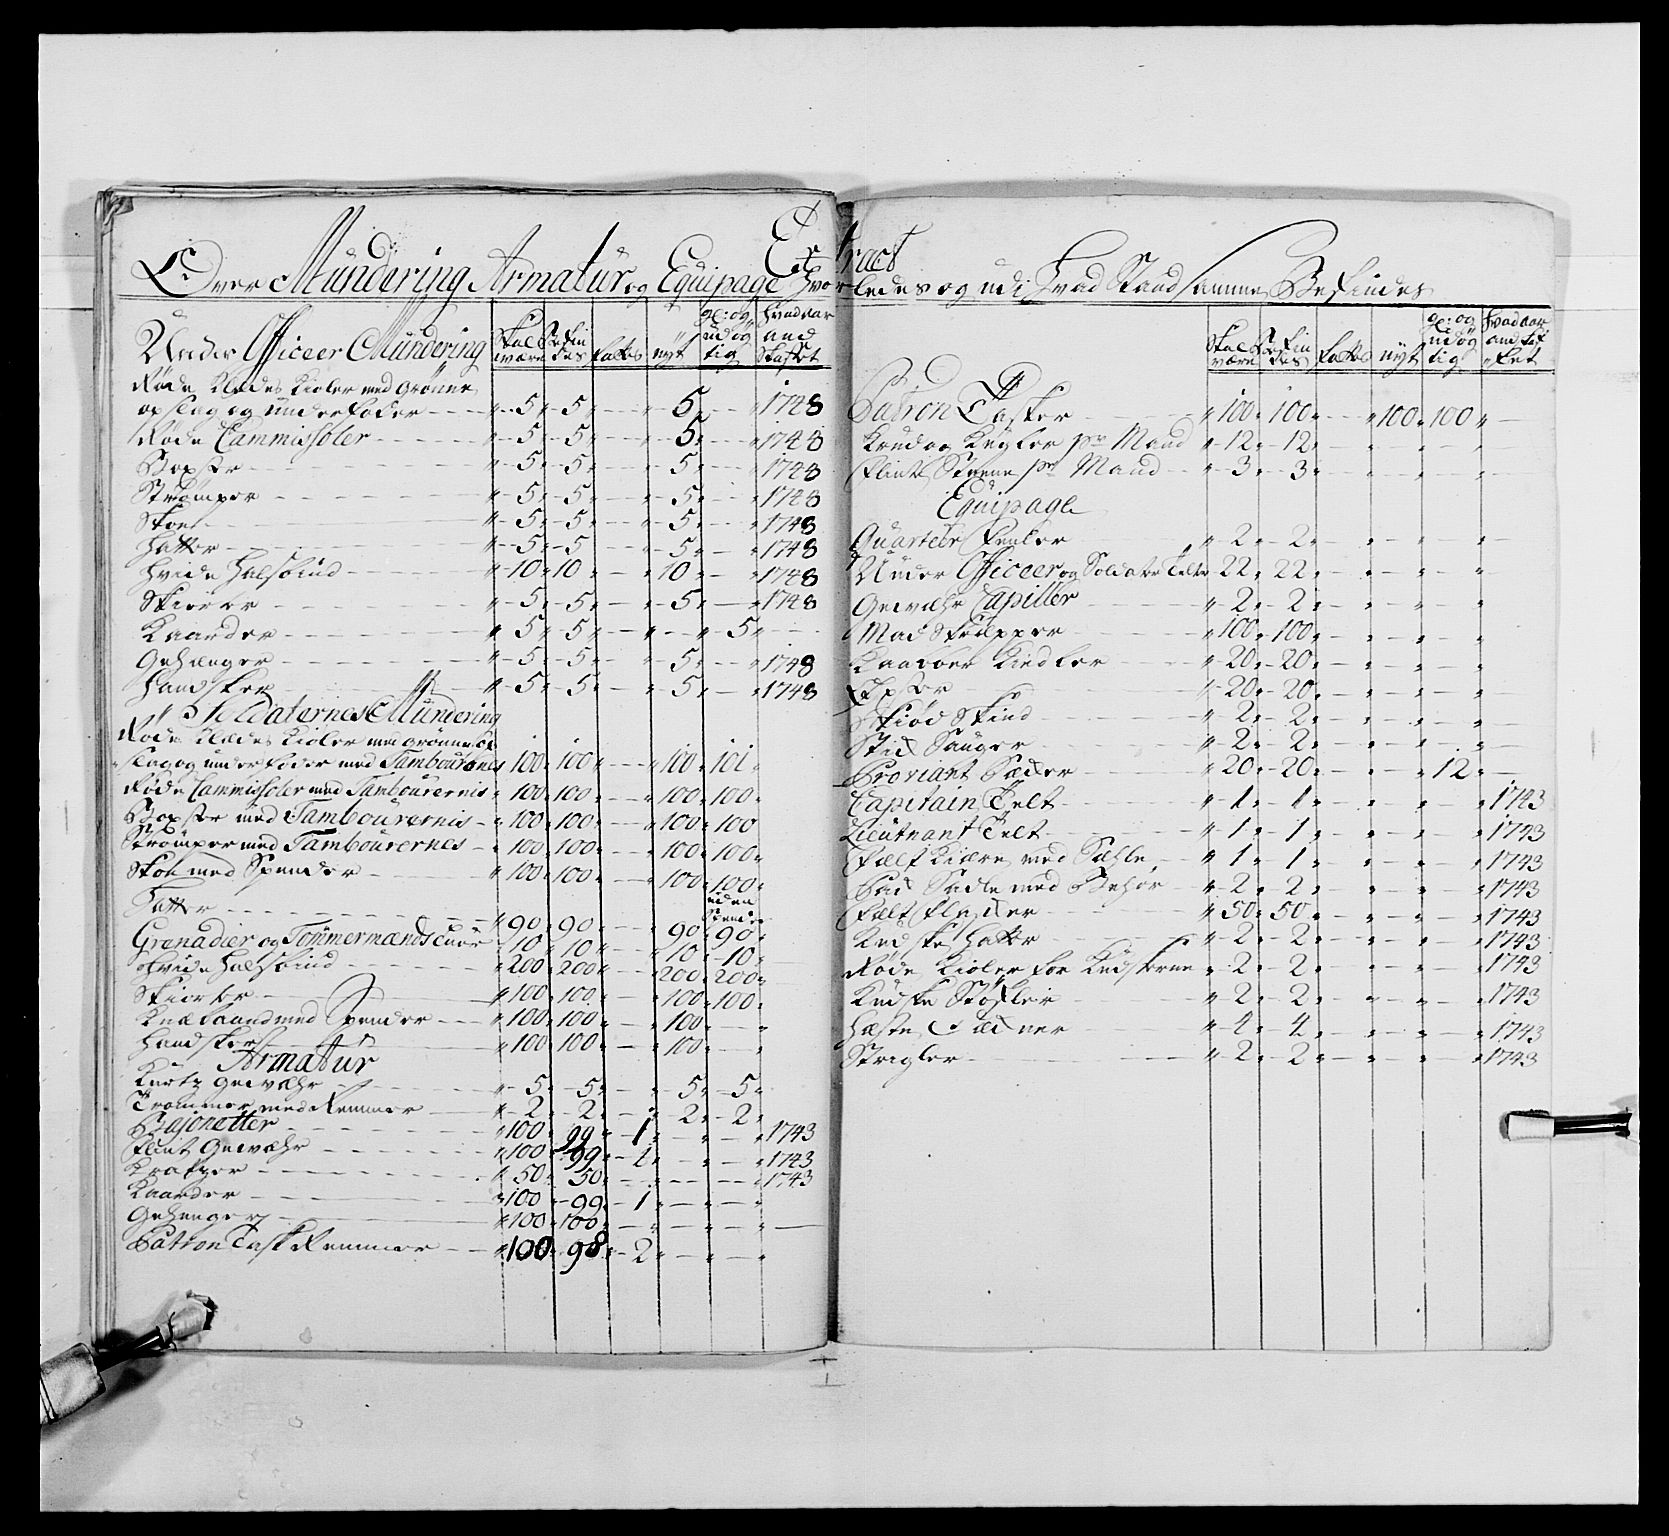 Extract
Over Mundering Armatur og Equipage Hvorledes og udi Hvad Stand samme Befindes
Under Officeer Mundering | Skal være | Befindes | Fattes | nyt | gl: og udögtig | Hvad aar anskaffet
Røde Klædes Kioler med Grønne
opslag og underfoder 5 5 5 1748
Røde Cammisoler 5 5 5 1748
Boxer 5 5 5 1748
Strømper 5 5 5 1748
Skoe 5 5 5 1748
Hatter 5 5 5 1748
Hvide Halsbind 10 10 10 1748
Skiorter 5 5 5 1748
Kaarder 5 5 5
Gehænger 5 5 5 1748
Handsker 5 5 5 1748
Soldaternes Mundering
Røde Klædes Kioler med grønne op
slag og underfoder med Tambourernes 100 100 100 101
Røde Cammisoler med Tambourernis 100 100 100 100
Boxer med Tambourernis 100 100 100 100
Strømper med Tambourernes 100 100 100 100
Skoe med Spender 100 100 100 100 uden Spender
Hatter 90 90 90 90
Grenadier og Tömmermænds Luer 10 10 10 10
Hvide Halsbind 200 200 200 200
Skiorter 100 100 100 100
Knæbaand med Spender 100 100 100
Handsker 100 100 100
Armatur
Kortz Gewæhr 5 5 5 5
Trommer med Remmer 2 2 2 2
Bajonetter 100 99 1 1743
Flint Gewæhr 100 99 1 1743
Kratzer 50 50 1743
Kaarder 100 99 1
Gehenger 100 100
Patron Task Remmer 100 98 2
Skal være | Befindes | Fattes | nyt | gl: og udögtig | Hvad aar anskaffet
Patron Tasker 100 100 100 100
Krud og Kugler pr Mand 12 12
Flint Steene pr Mand 3 3
Equipage
Quarteer Fenler 2 2
Under Officeer og Soldater Telte 22 22
Gewæhr Capiller 2 2
Mad Skræpper 100 100
Kaaber Kiedler 20 20
Øxer 20 20
Skiød Skind 2 2
Stik Sauger 2 2
Proviant Sæcker 20 20 12
Capitain Telt 1 1 1743
Lieutnant Telt 1 1 1743
Felt Kiære med Sehle 1 1 1743
Pak Sadle med Behør 2 2 1743
Felt Flasker 50 50 1743
Kudske Hatte 2 2 1743
Røde Kioler for Kudskerne 2 2 1743
Kudske Støfler 2 2 1743
Heste Decker 4 4 1743
Strigler 2 2 1743